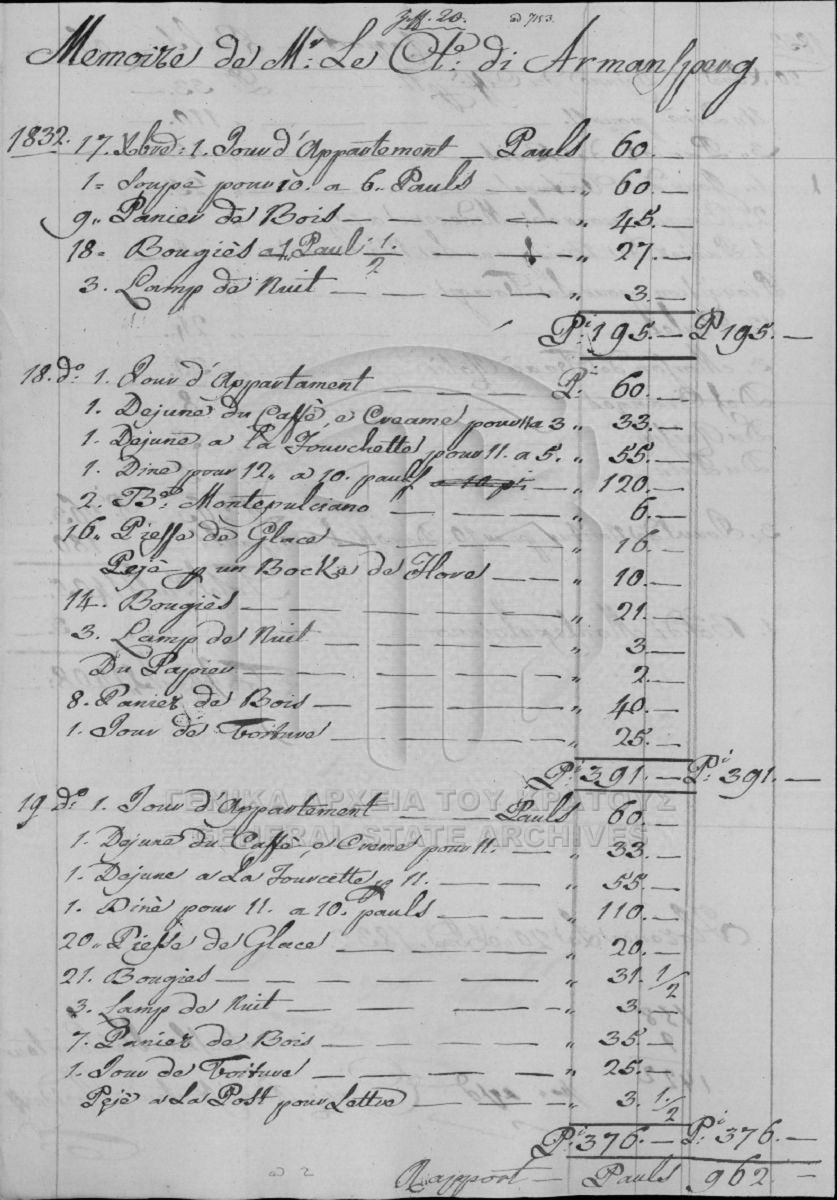 Zff. 20. ad 7153.
Memoire de Mr. Le Cto. di Armansperg
1832. 17. Xbre: 1. Jour d'Appartement — Pauls 60.—
1= Soupè pour 10. a 6. Pauls — „ 60.—
9„ Panier de Bois — — — — „ 45.—
18= Bougiès a 1, Paul: 1/2 — — „ 27.—
3. Lamp de Nuit — — — — „ 3.—
Pi. 195.— Pi 195.—
18. do: 1. Jour d'Appartament — — — Pi. 60.—
1. Dejunè du Caffè, e Creame pour 11 a 3 „ 33.—
1. Dejunè a la Fourchette, pour 11. a 5. „ 55.—
1. Dine pour 12„ a 10. pauls a 10 pi — „ 120.—
2. Be. Montepulciano — — — „ 6.—
16„ Pieffe de Glace — — — „ 16.—
Pejè p un Bocke de Flore — — „ 10.—
14. Bougiès — — — — „ 21.—
3. Lamp de Nuit — — — — „ 3.—
Du Papier — — — — „ 2.—
8. Panier de Bois — — — — „ 40.—
1. Jour de Voiture — — — „ 25.—
Pi. 391.— Pi. 391.—
19 do: 1. Jour d'Appartement — — Pauls 60.—
ΓΕΝΙΚΑ ΑΡΧΕΙΑ ΤΟΥ ΚΡΑΤΟΥΣ
GENERAL STATE ARCHIVES
1. Dejune du Caffè, e Creme pour 11. — „ 33.—
1. Dejune a La Fourcette p 11. — — „ 55.—
1. Dinè pour 11. a 10. pauls — — „ 110.—
20„ Pieffe de Glace — — — „ 20.—
21. Bougies — — — — „ 31. 1/2
3. Lamp de Nuit — — — — „ 3.—
7. Panier de Bois — — — „ 35.—
1. Jour de Voiture — — — „ 25.—
Pejè a La Post pour Lettre — — „ 3. 1/2
Pi. 376.— Pi. 376.—
Rapport — Pauls 962.—